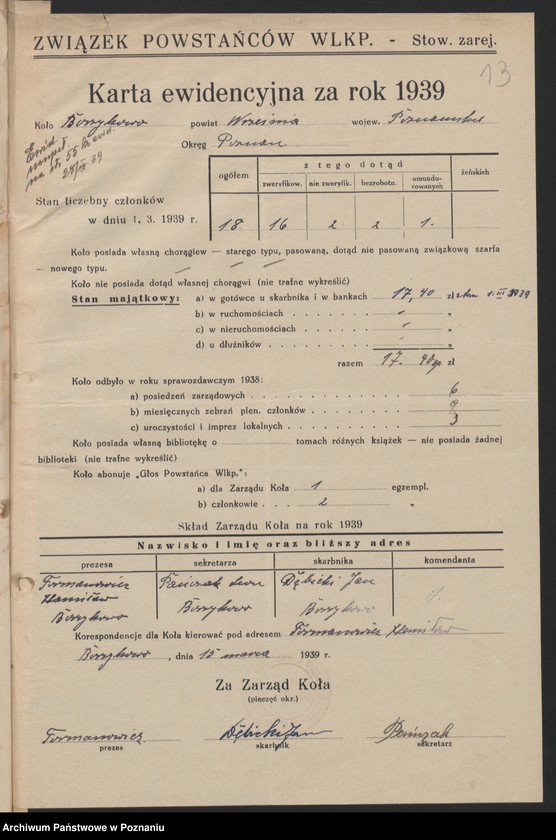 ZWIĄZEK POWSTAŃCÓW WLKP. - Stow. zarej.
13
Karta ewidencyjna za rok 1939
Koło Borzykowo powiat Września wojew. Poznańskie
Okręg Poznań
ogółem z tego dotąd żeńskich
zweryfikow. nie zweryfik. bezrobotn. umundurowanych
Stan liczebny członków
w dniu 1. 3. 1939 r. 18. 16 2 2 1.
Koło posiada własną chorągiew — starego typu, pasowaną, dotąd nie pasowaną związkową szarfą
— nowego typu.
Koło nie posiada dotąd własnej chorągwi (nie trafne wykreślić)
Stan majątkowy: a) w gotówce u skarbnika i w bankach 17,40 zł 1. III 1939
b) w ruchomościach . . . . . . . - „
c) w nieruchomościach . . . . . . - „
d) u dłużników . . . . . . . . - „
razem 17. 40gr zł
Koło odbyło w roku sprawozdawczym 1938:
a) posiedzeń zarządowych . . . . . . . . . . 6
b) miesięcznych zebrań plen. członków . . . . . . 9
c) uroczystości i imprez lokalnych . . . . . . . 3
Koło posiada własną bibliotekę o tomach różnych książek — nie posiada żadnej
biblioteki (nie trafne wykreślić)
Koło abonuje „Głos Powstańca Wlkp.":
a) dla Zarządu Koła 1 egzempl.
b) członkowie . . . 2 „
Skład Zarządu Koła na rok 1939
Nazwisko i imię oraz bliższy adres
prezesa sekretarza skarbnika komendanta
Formanowicz Pańczak Leon Dębicki Jan
Stanisław
Borzykowo Borzykowo Borzykowo
Korespondencje dla Koła kierować pod adresem Formanowicz Stanisław
Borzykowo, dnia 15 marca 1939 r.
Za Zarząd Koła
(pieczęć okr.)
Formanowicz Dębicki Jan Pańczak
prezes skarbnik sekretarz
Archiwum Państwowe w Poznaniu